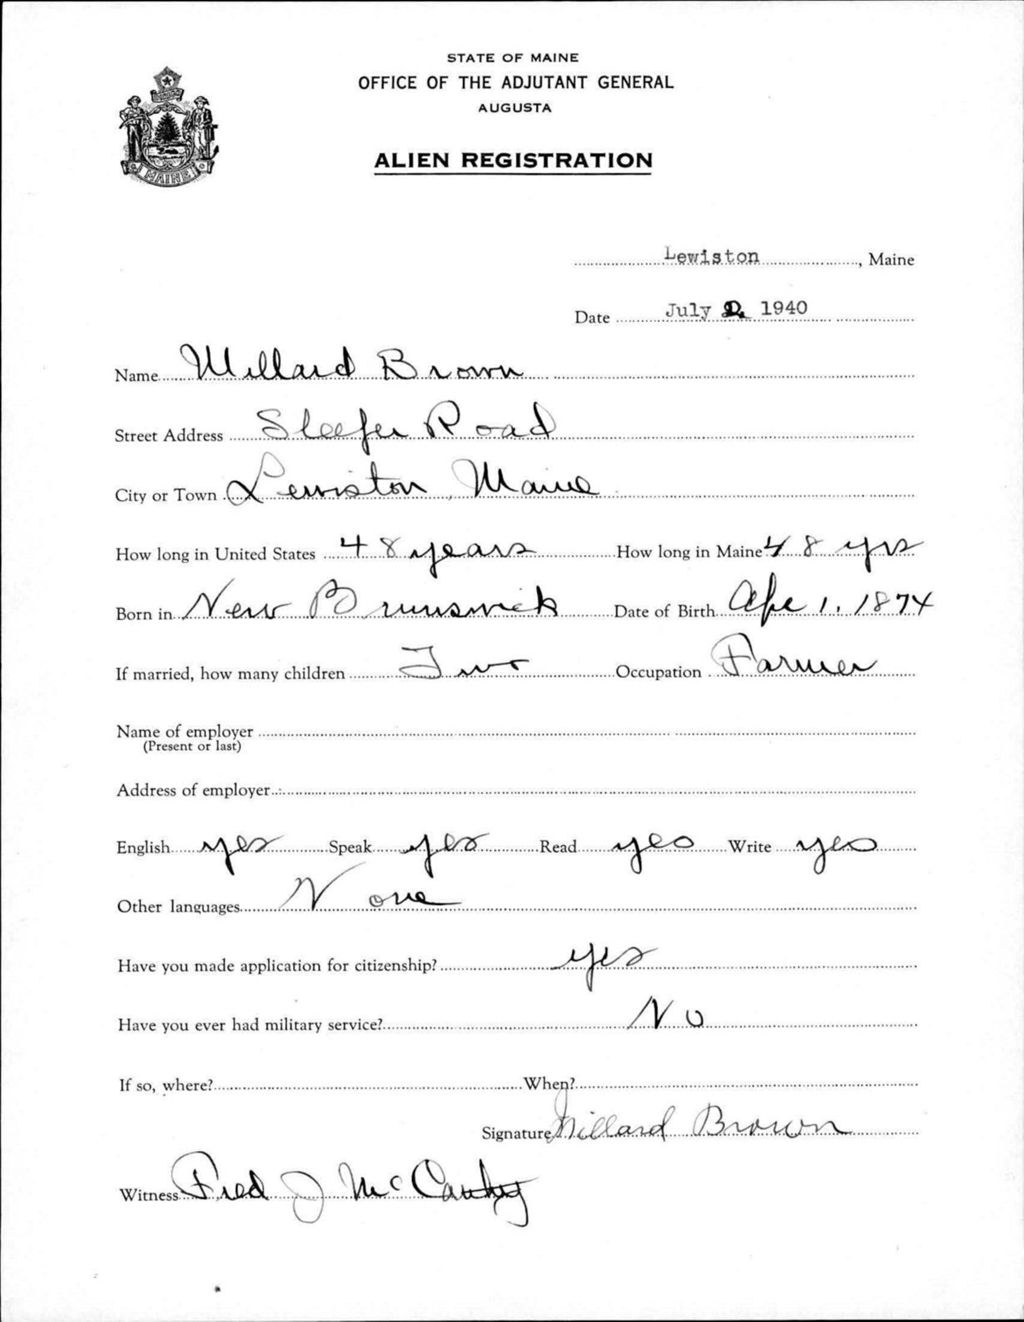 STATE OF MAINE
OFFICE OF THE ADJUTANT GENERAL
AUGUSTA
ALIEN REGISTRATION
MAINE
Lewiston, Maine
Date July 2, 1940
Name Millard Brown
Street Address Sleeper Road
City or Town Lewiston, Maine
How long in United States 48 years How long in Maine 48 yrs
Born in New Brunswick Date of Birth Apr 1, 1874
If married, how many children Two Occupation Farmer
Name of employer
(Present or last)
Address of employer
English yes Speak yes Read yes Write yes
Other languages None
Have you made application for citizenship? yes
Have you ever had military service? No
If so, where? When?
Signature Millard Brown
Witness Fred J McCarthy